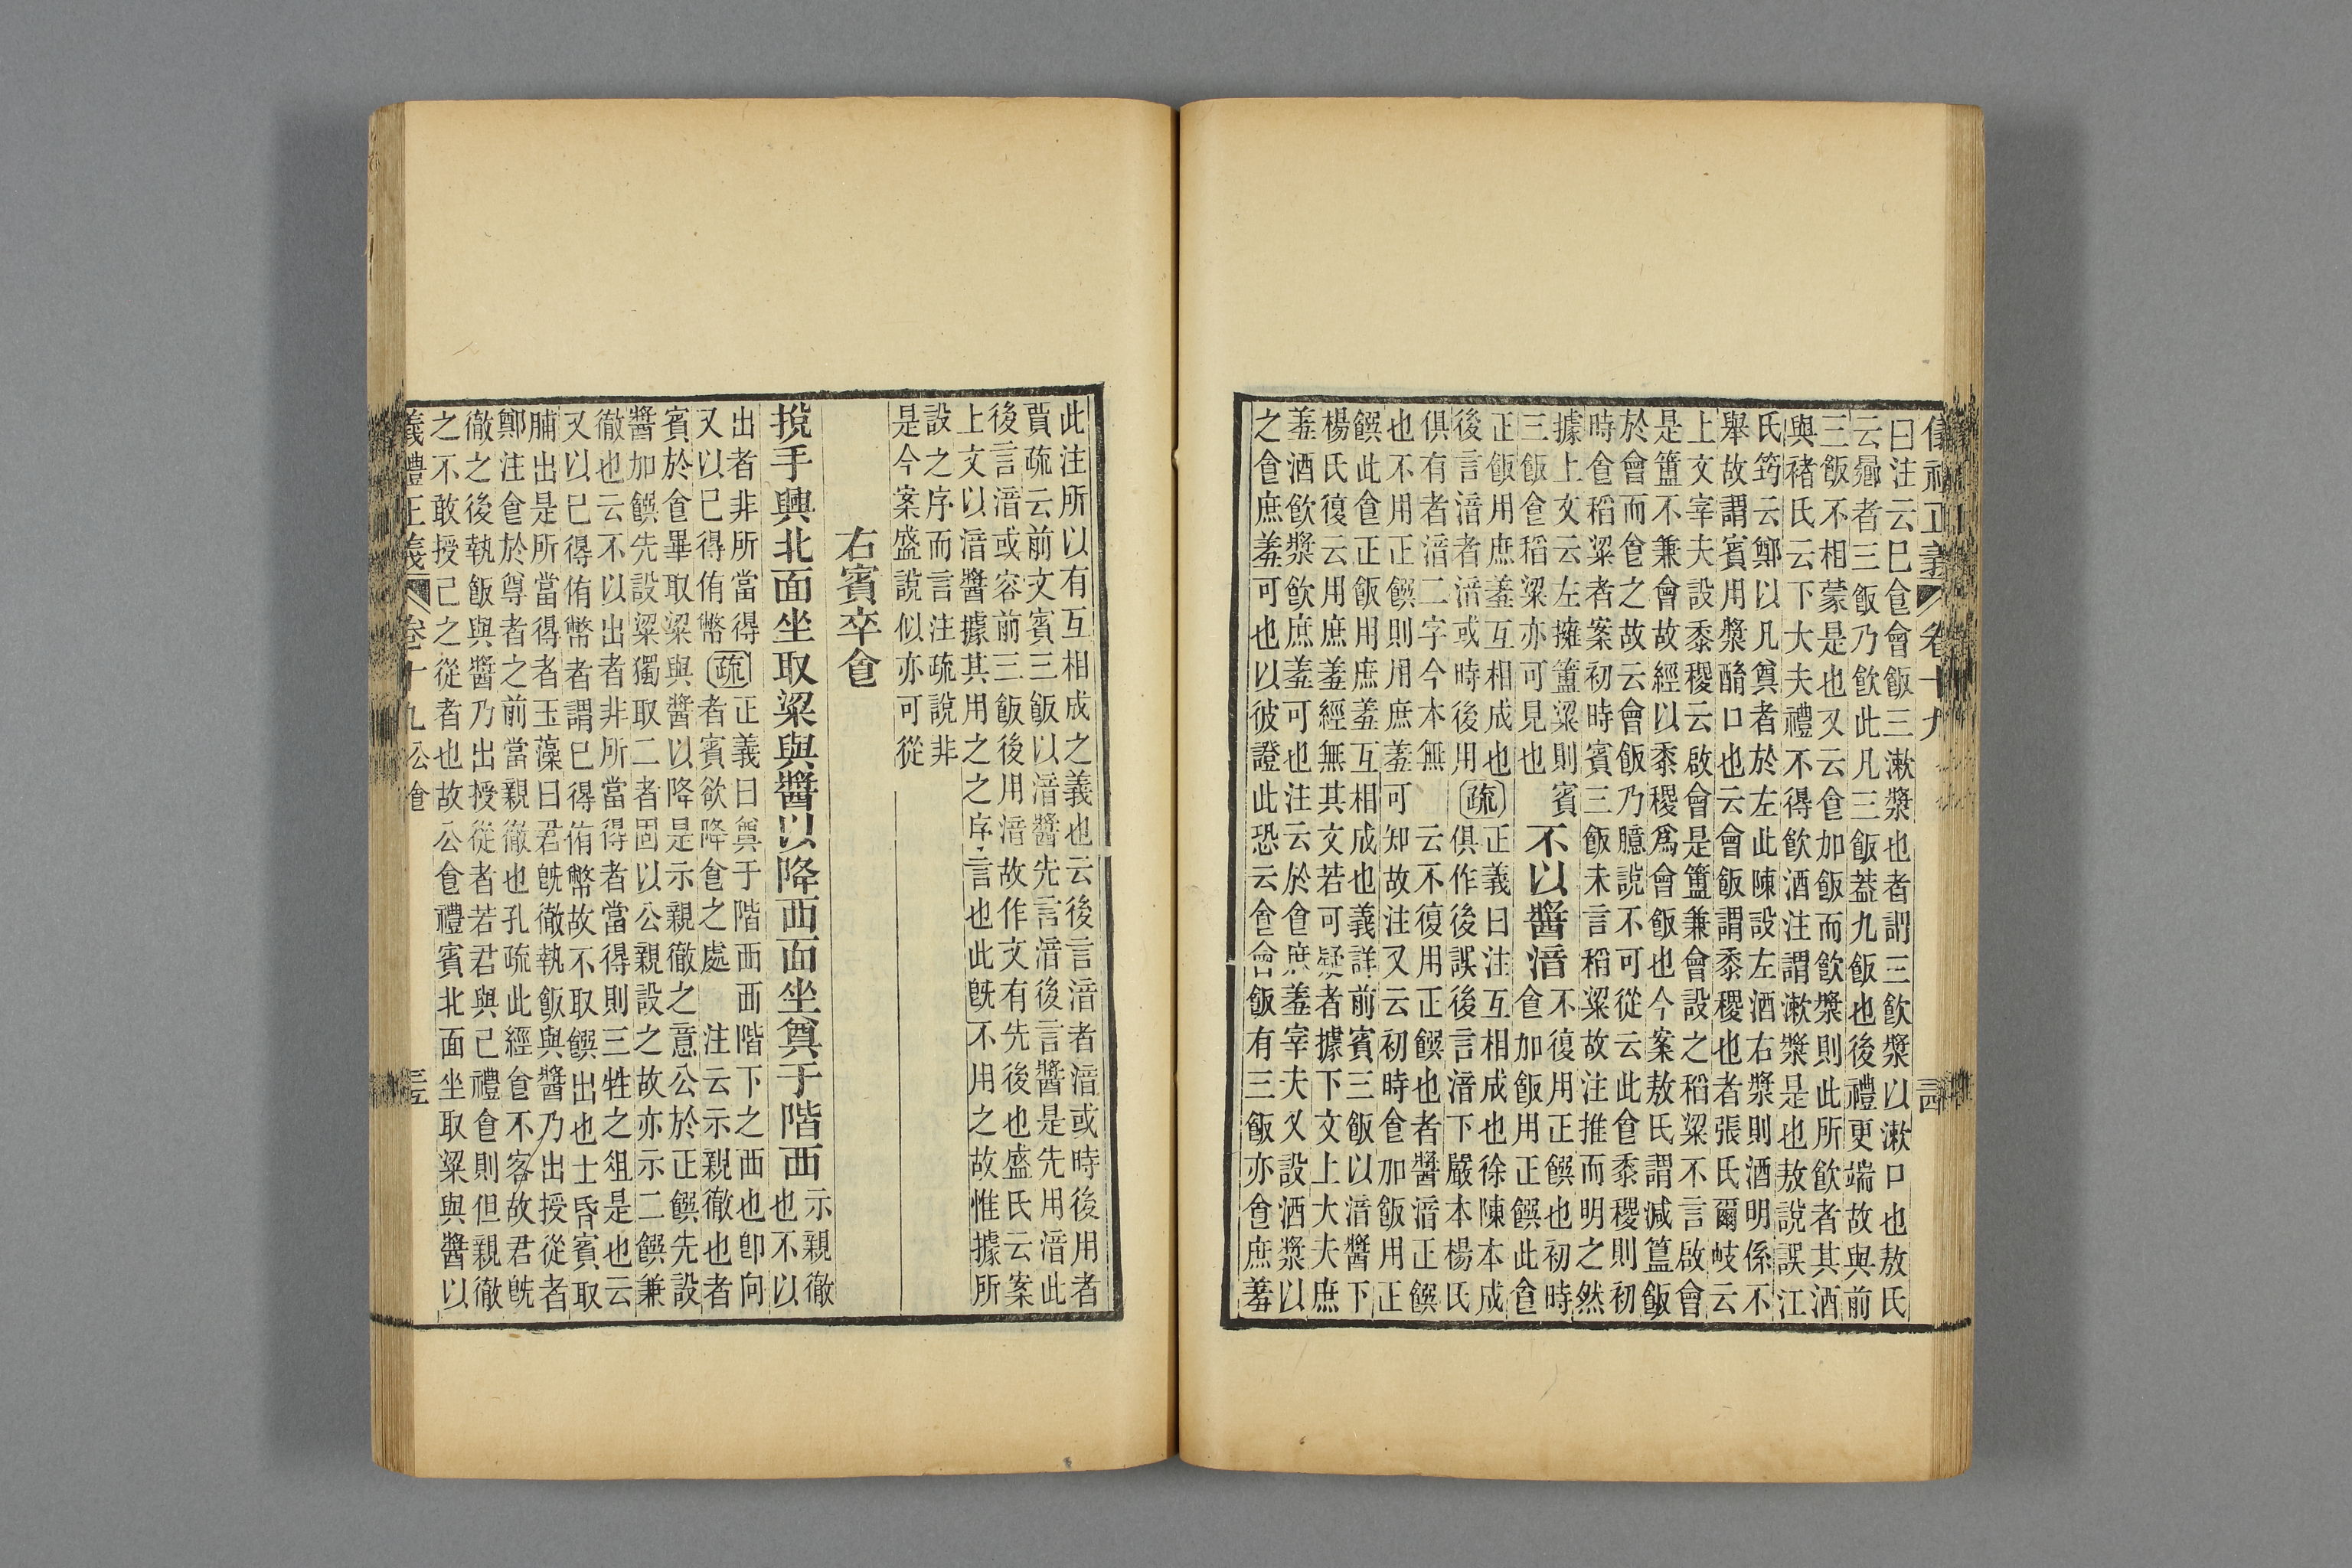 儀禮正義 卷十九 三四
曰注云已食會飯三漱漿也者謂三飲漿以漱口也敖氏
云鄉者三飯乃飲此凡三飯蓋九飯也後禮更端故與前
三飯不相蒙是也又云食加飯而飲漿則此所飲者其酒
與褚氏云下大夫禮不得飲酒注謂漱漿是也敖說誤江
氏筠云鄭以凡奠者於左此陳設左酒右漿則酒明係不
舉故謂賓用漿酳口也云會飯謂黍稷也者張氏爾岐云
上文宰夫設黍稷云啟會是簠兼會設之稻粱不言啟會
是簠不兼會故經以黍稷爲會飯也今案敖氏謂減簋飯
於會而食之故云會飯乃臆說不可從云此食黍稷則初
時食稻粱者案初時賓三飯未言稻粱故注推而明之然
據上文云左擁簠粱則賓
三飯食稻粱亦可見也
不以醬湇
不復用正饌也初時
食加飯用正饌此食
正飯用庶羞互相成也
後言湇者湇或時後用
疏
正義曰注互相成也徐陳本成
俱作後誤後言湇下嚴本楊氏
俱有者湇二字今本無
云不復用正饌也者醬湇正饌
也不用正饌則用庶羞可知故注又云初時食加飯用正
饌此食正飯用庶羞互相成也義詳前賓三飯以湇醬下
楊氏復云用庶羞經無其文若可疑者據下文上大夫庶
羞酒飲漿飲庶羞可也注云於食庶羞宰夫又設酒漿以
之食庶羞可也以彼證此恐云食會飯有三飯亦食庶羞
此注所以有互相成之義也云後言湇者湇或時後用者
賈疏云前文賓三飯以湇醬先言湇後言醬是先用湇此
後言湇或容前三飯後用湇故作文有先後也盛氏云案
上文以湇醬據其用之之序言也此旣不用之故惟據所
設之序而言注疏說非
是今案盛說似亦可從
右賓卒食
挩手興北面坐取粱與醬以降西面坐奠于階西
示親徹
也不以
出者非所當得
又以已得侑幣
疏
正義曰奠于階西西面階下之西也卽向
者賓欲降食之處 注云示親徹也者
賓於食畢取粱與醬以降是示親徹之意公於正饌先設
醬加饌先設粱獨取二者固以公親設之故亦示二饌兼
徹也云不以出者非所當得者當得則三牲之俎是也云
又以已得侑幣者謂已得侑幣故不取饌出也士昏賓取
脯出是所當得者玉藻曰君旣徹執飯與醬乃出授從者
鄭注食於尊者之前當親徹也孔疏此經食不客故君旣
徹之後執飯與醬乃出授從者若君與己禮食則但親徹
之不敢授己之從者也故公食禮賓北面坐取粱與醬以
義禮正義 卷十九 公食 三五